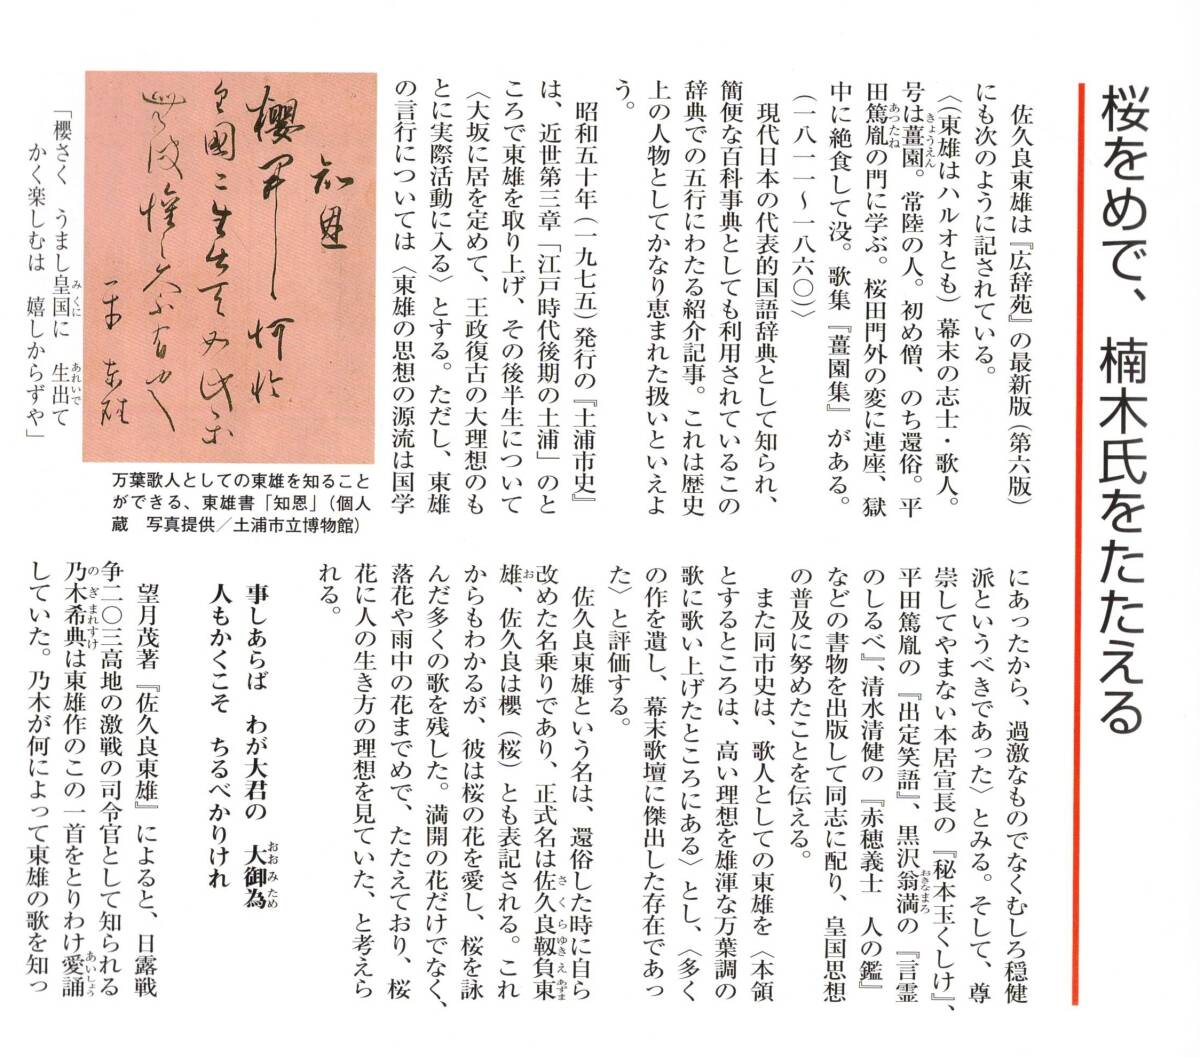 桜をめで、楠木氏をたたえる
佐久良東雄は『広辞苑』の最新版(第六版)
にも次のように記されている。
〈(東雄はハルオとも)幕末の志士・歌人。
号は薑園。常陸の人。初め僧、のち還俗。平
きょうえん
田篤胤の門に学ぶ。桜田門外の変に連座、獄
あつたね
中に絶食して没。歌集『薑園集』がある。
(一八一一～一八六〇)〉
現代日本の代表的国語辞典として知られ、
簡便な百科事典としても利用されているこの
辞典での五行にわたる紹介記事。これは歴史
上の人物としてかなり恵まれた扱いといえよ
う。
昭和五十年(一九七五)発行の『土浦市史』
は、近世第三章「江戸時代後期の土浦」のと
ころで東雄を取り上げ、その後半生について
〈大坂に居を定めて、王政復古の大理想のも
とに実際活動に入る〉とする。ただし、東雄
の言行については〈東雄の思想の源流は国学
知恩
東雄
万葉歌人としての東雄を知ること
ができる、東雄書「知恩」(個人
蔵　写真提供／土浦市立博物館)
「櫻さく　うまし皇国に　生出て
みくに　あれいで
かく楽しむは　嬉しからずや」
にあったから、過激なものでなくむしろ穏健
派というべきであった〉とみる。そして、尊
崇してやまない本居宣長の『秘本玉くしけ』、
平田篤胤の『出定笑語』、黒沢翁満の『言霊
おきなまろ
のしるべ』、清水清健の『赤穂義士　人の鑑』
などの書物を出版して同志に配り、皇国思想
の普及に努めたことを伝える。
また同市史は、歌人としての東雄を〈本領
とするところは、高い理想を雄渾な万葉調の
歌に歌い上げたところにある〉とし、〈多く
の作を遺し、幕末歌壇に傑出した存在であっ
た〉と評価する。
佐久良東雄という名は、還俗した時に自ら
改めた名乗りであり、正式名は佐久良靱負東
さくらゆきえあずま
雄、佐久良は櫻(桜)とも表記される。これ
お
からもわかるが、彼は桜の花を愛し、桜を詠
んだ多くの歌を残した。満開の花だけでなく、
落花や雨中の花までめで、たたえており、桜
花に人の生き方の理想を見ていた、と考えら
れる。
事しあらば　わが大君の　大御為
おおみため
人もかくこそ　ちるべかりけれ
望月茂著『佐久良東雄』によると、日露戦
争二〇三高地の激戦の司令官として知られる
乃木希典は東雄作のこの一首をとりわけ愛誦
のぎまれすけ　あいしょう
していた。乃木が何によって東雄の歌を知っ